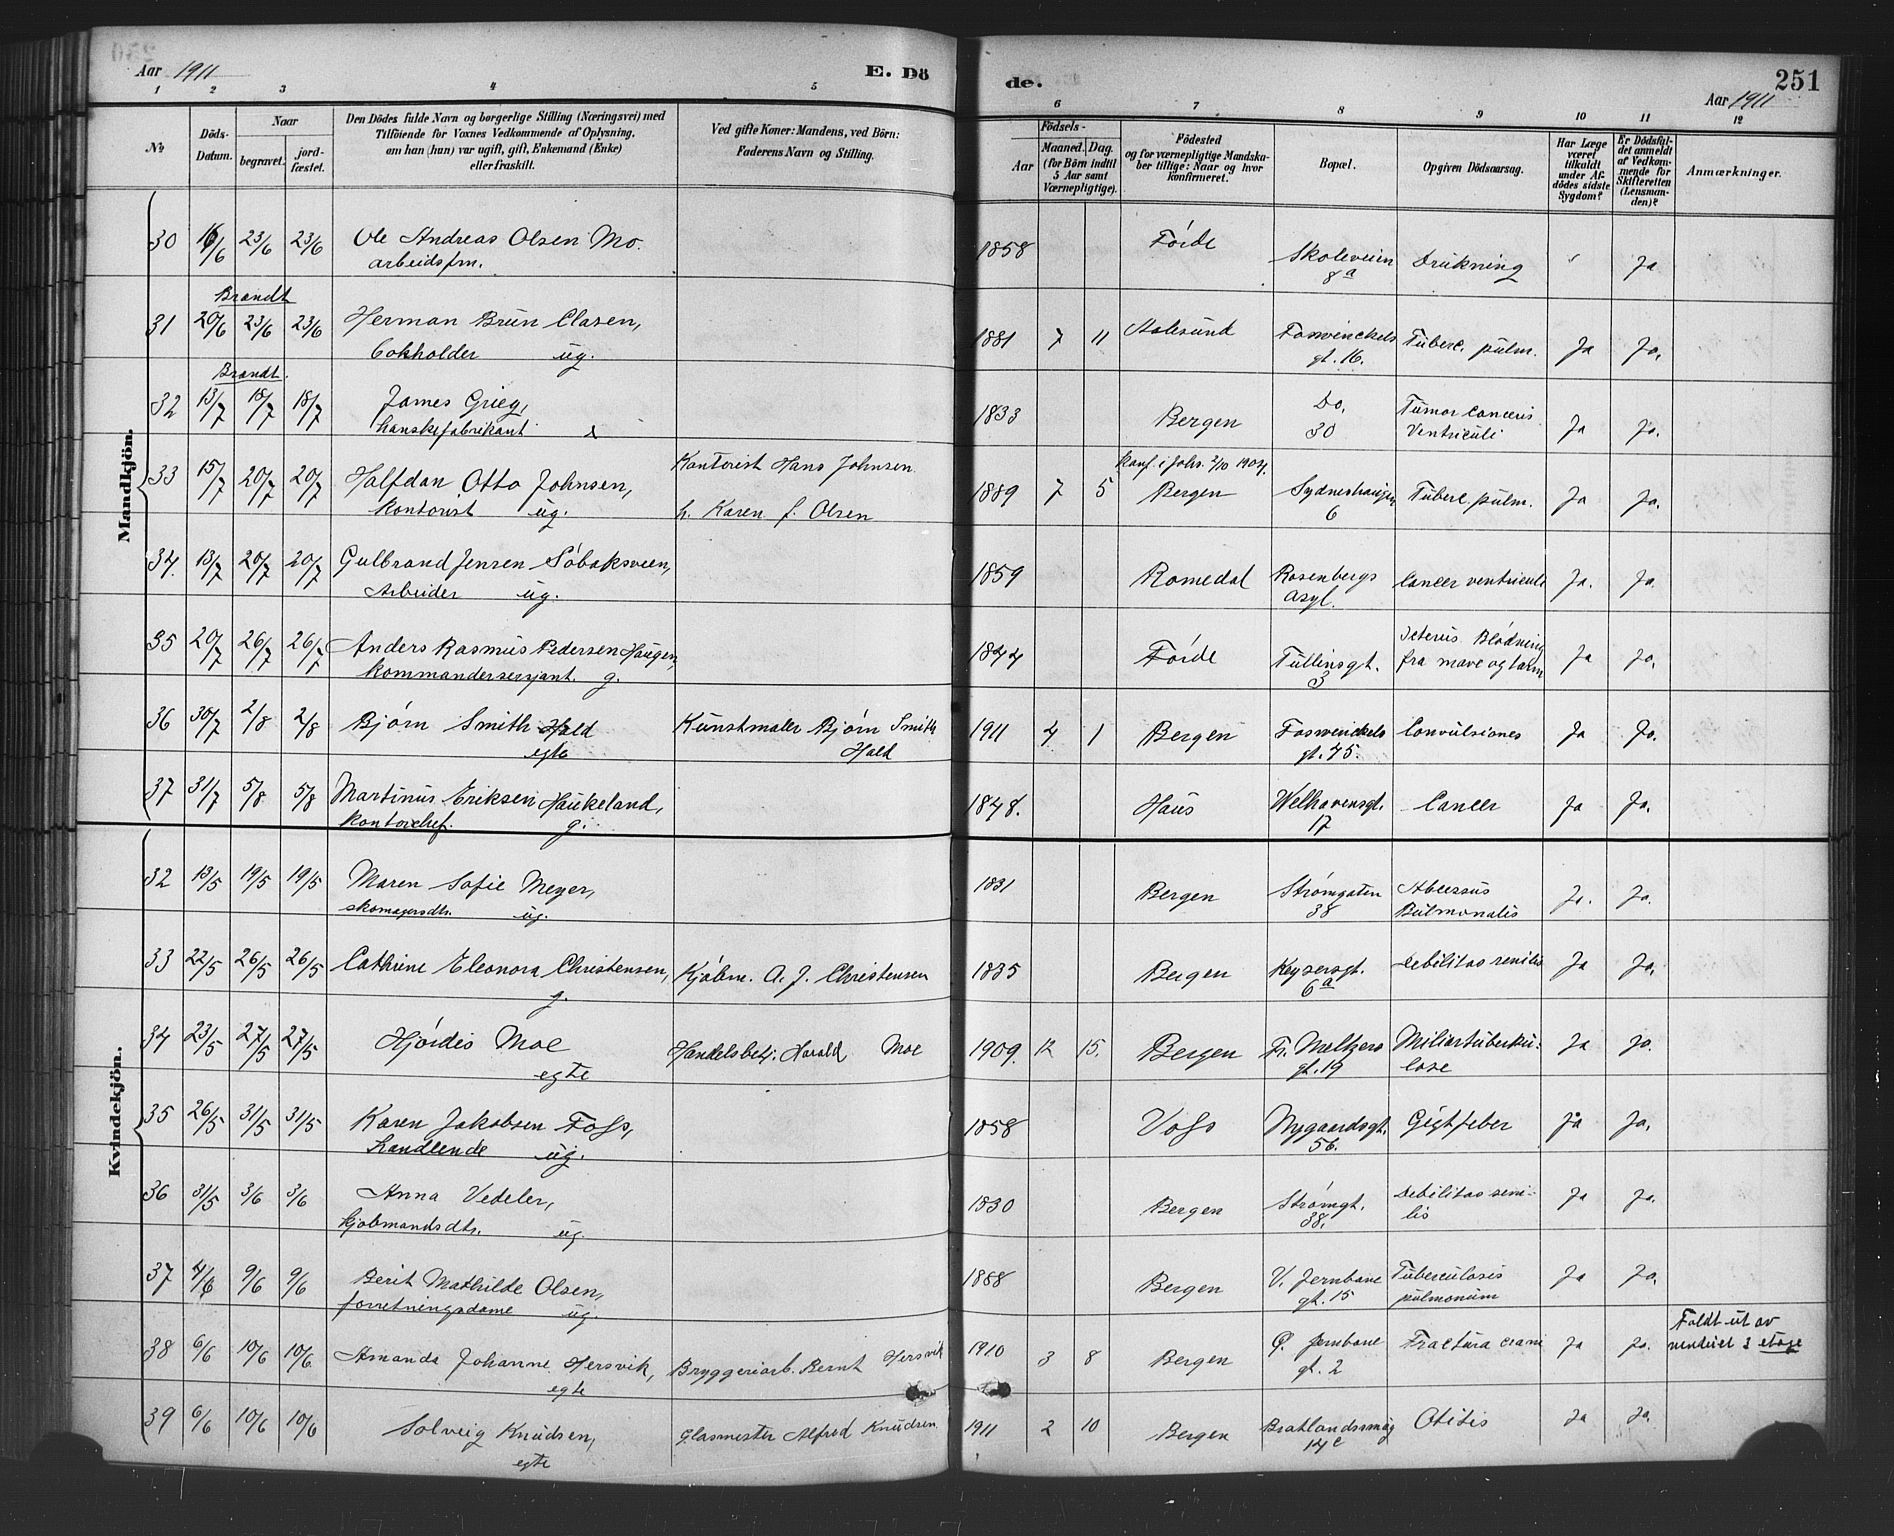 Aar 1911
E. Dö
de.
251
Aar 1911
1 2 3 4 5 6 7 8 9 10 11 12
No
Döds-
Datum.
Naar
begravet.
jord-
fæstet.
Den Dödes fulde Navn og borgerlige Stilling (Næringsvei) med
Tilföiende for Voxnes Vedkommende af Oplysning,
om han (hun) var ugift, gift, Enkemand (Enke)
eller fraskilt.
Ved gifte Koner: Mandens, ved Börn:
Faderens Navn og Stilling.
Födsels-
Aar
Maaned. Dag.
(for Börn indtil
5 Aar samt
Værnepligtige).
Födested
og for værnepligtige Mandska-
ber tillige: Naar og hvor
konfirmeret.
Bopæl.
Opgiven Dödsaarsag.
Har Læge
været
tilkaldt
under Af-
dödes sidste
Sygdom?
Er Dödsfal-
det anmeldt
af Vedkom-
mende for
Skifteretten
(Lensman-
den)?
Anmærkninger.
Mandkjön.
30 16/6 23/6 23/6 Ole Andreas Olsen Mo. 1858 Förde Skoleveien Drukning Ja
arbeidsfm. 8a
Brandt
31 20/6 23/6 23/6 Herman Brun Clasen, 1881 7 11 Aalesund Fosswinckels Tuberc. pulm. Ja Ja.
Cokholder ug. gt. 16.
Brandt.
32 13/7 18/7 18/7 James Grieg, 1833 Bergen Do. Tumor Canceris Ja Ja.
hanskefabrikant 30 Ventriculi
33 15/7 20/7 20/7 Halfdan Otto Johnsen, Kontorist Hans Johnsen 1889 7 5 Konf i Johs. 2/10 1904. Bergen Sydneshaugen Tuberc. pulm. Ja Ja.
Kontorist ug. h. Karen f. Olsen 6
34. 13/7 20/7 20/7 Gulbrand Jensen Söbaksveen, 1859 Romedal Rosenbergs Cancer ventriculi Ja. Ja.
Arbeider ug. Asyl.
35 20/7 26/7 26/7 Anders Rasmus Pedersen Haugen, 1844 Förde Tullinsgt. Icterus Blödning Ja Ja.
Kommandersersjant. g. 3 fra mave og tarm
36 30/7 2/8 2/8 Bjørn Smith Hald Kunstmaler Bjørn Smith 1911 4 1 Bergen Fosswinckels Convulsiones Ja Ja.
egte Hald gt. 45.
37 31/7 5/8 5/8 Martinus Eriksen Haukeland, 1848. Haus Welhavensgt. Cancer Ja Ja.
Kontorchef. g. 17
Kvindekjön.
32 13/5 19/5 19/5 Maren Sofie Meyer, 1831 Bergen Strömgaten Abcessus Ja. Ja.
skomagersdtr. ug. 38 Pulmonalis
33 22/5 26/5 26/5 Cathrine Eleonora Christensen, Kjøbm. A. J. Christensen 1835 Bergen Keysersgt. Debilitas senilis Ja Ja.
g. 6a
34 23/5 27/5 27/5 Hjördis Moe Handelsbetj. Harald Moe 1909. 12 15. Bergen Fr. Meltzers Miliærtuberku- Ja Ja.
egte gt. 19 lose
35 26/5 31/5 31/5 Karen Jakobsen Foss, 1858 Voss Nygaardsgt. Gigtfeber Ja Ja.
Handlende ug. 56.
36 31/5 3/6 3/6 Anna Vedeler, 1830 Bergen Strömgt. Debilitas seni- Ja Ja.
kjøbmandsdtr. ug. 38. lis
37 4/6 9/6 9/6 Berit Mathilde Olsen, 1888 Bergen V. Jernbane Tuberculosis Ja Ja.
forretningsdame ug. gt. 15 pulmonum
38 6/6 10/6 10/6 Amanda Johanne Hersvik, Bryggeriarb. Bernt Hersvik 1910 3 8 Bergen Ø. Jernbane Fractura crani Ja Ja. Faldt ut av
egte gt. 2 vinduet 3 etage
39 6/6 10/6 10/6 Solveig Knudsen, Glasmester Alfred Knudsen 1911 2 10 Bergen Bratlandssmug Otitis Ja Ja.
egte 14c